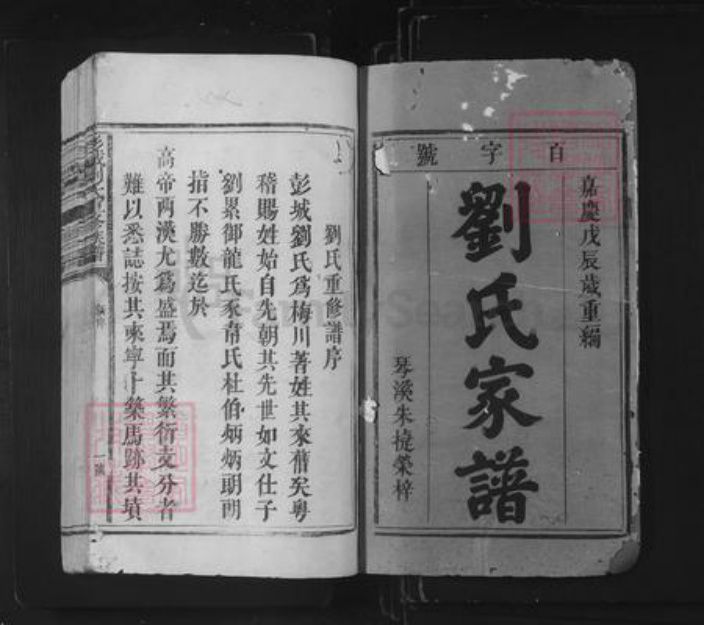 百字號
嘉慶戊辰歲重編
劉氏家譜
琴溪朱㨗榮梓
劉氏重修譜序
彭城劉氏爲梅川著姓其來舊矣粤
稽賜姓始自先朝其先世如文仕子
劉累御龍氏豕韋氏杜伯炳炳朗朗
指不勝數迄於
高帝兩漢尤爲盛焉而其繁衍支分者
難以悉誌按其來寧卜築馬跡其墳
一號